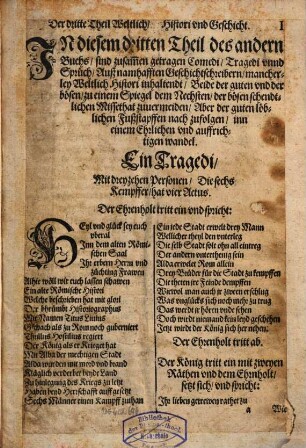 Der dritte Theil Weltlich/ Histori vnd Geschicht. 1
IN diesem dritten Theil des andern
Buchs/ sind zusamen getragen Comedi/ Tragedi vnnd
Sprüch/ Auß namhafften Geschichtschreibern/ mancher-
ley Weltlich Histori inhaltendt/ Beide der guten vnd der
bösen/ zu einem Spiegel dem Nechsten/ der bösen schendt-
lichen Missethat zuuermeiden/ Aber der guten löb-
lichen Fußstapffen nach zufolgen/ inn
einem Ehrlichen vnd auffrich-
tigen wandel.
Ein Tragedi/
Mit dreyzehen Personen/ Die sechs
Kempffer/ hat vier Actus.
Der Ehrnholt tritt ein vnd spricht:
HEyl vnd glück sey euch
vberal
Inn dem alten Römi-
schen Saal
Ihr erbern Herrn vnd
züchting Frawen
Alhie wöll wir euch lassen schawen
Ein alte Römische Histori
Welche beschrieben hat mit glori
Der berümbt Historiographus
Mit Namen Titus Liuius
Geschach als zu Rom noch guberniert
Tullius Hostilius regiert
Der König als er Krieget hat
Mit Alba der mechtigen Stadt
Alda wurden mit mord vnd brand
Kläglich verderbet beyde Land
Zu hinlegung des Kriegs zu letz
Haben beyd Herrschafft auff gsetzt
Sechs Männer einen Kampff zuthan
Ein jede Stadt erwelt drey Mann
Wellicher theyl den vnterleg
Die selb Stadt solt ohn all eintreg
Der andern vnterthenig sein
Alda erwelet Rom allein
Drey Brüder für die Stadt zu kempffen
Die theten jre Feinde dempffen
Wiewol man auch je zween erschlug
Was vnglücks sich noch mehr zu trug
Das werdt jr hören vnde sehen
Doch wirdt niemandt kein leid geschehen
Jetz wirdt der König sich her nehen.
Der Ehrnholt tritt ab.
Der König tritt ein mit zweyen
Räthen vnd dem Ehrnholt/
setzt sich/ vnd spricht:
Ihr lieben getrewen rathet zu
a Wie
Bibliothek